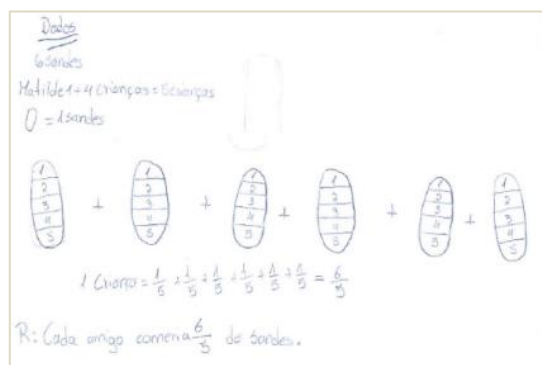 Dados
6 sandes
Matilde 1 + 4 crianças = 5 crianças
0 = 1 sandes
1 1 1 1 1 1
2 2 2 2 2 2
3 + 3 + 3 + 3 + 3 + 3
4 4 4 4 4 4
5 5 5 5 5 5
1 Criança = 1/5 + 1/5 + 1/5 + 1/5 + 1/5 + 1/5 = 6/5
R: Cada amigo comeria 6/5 de sandes.